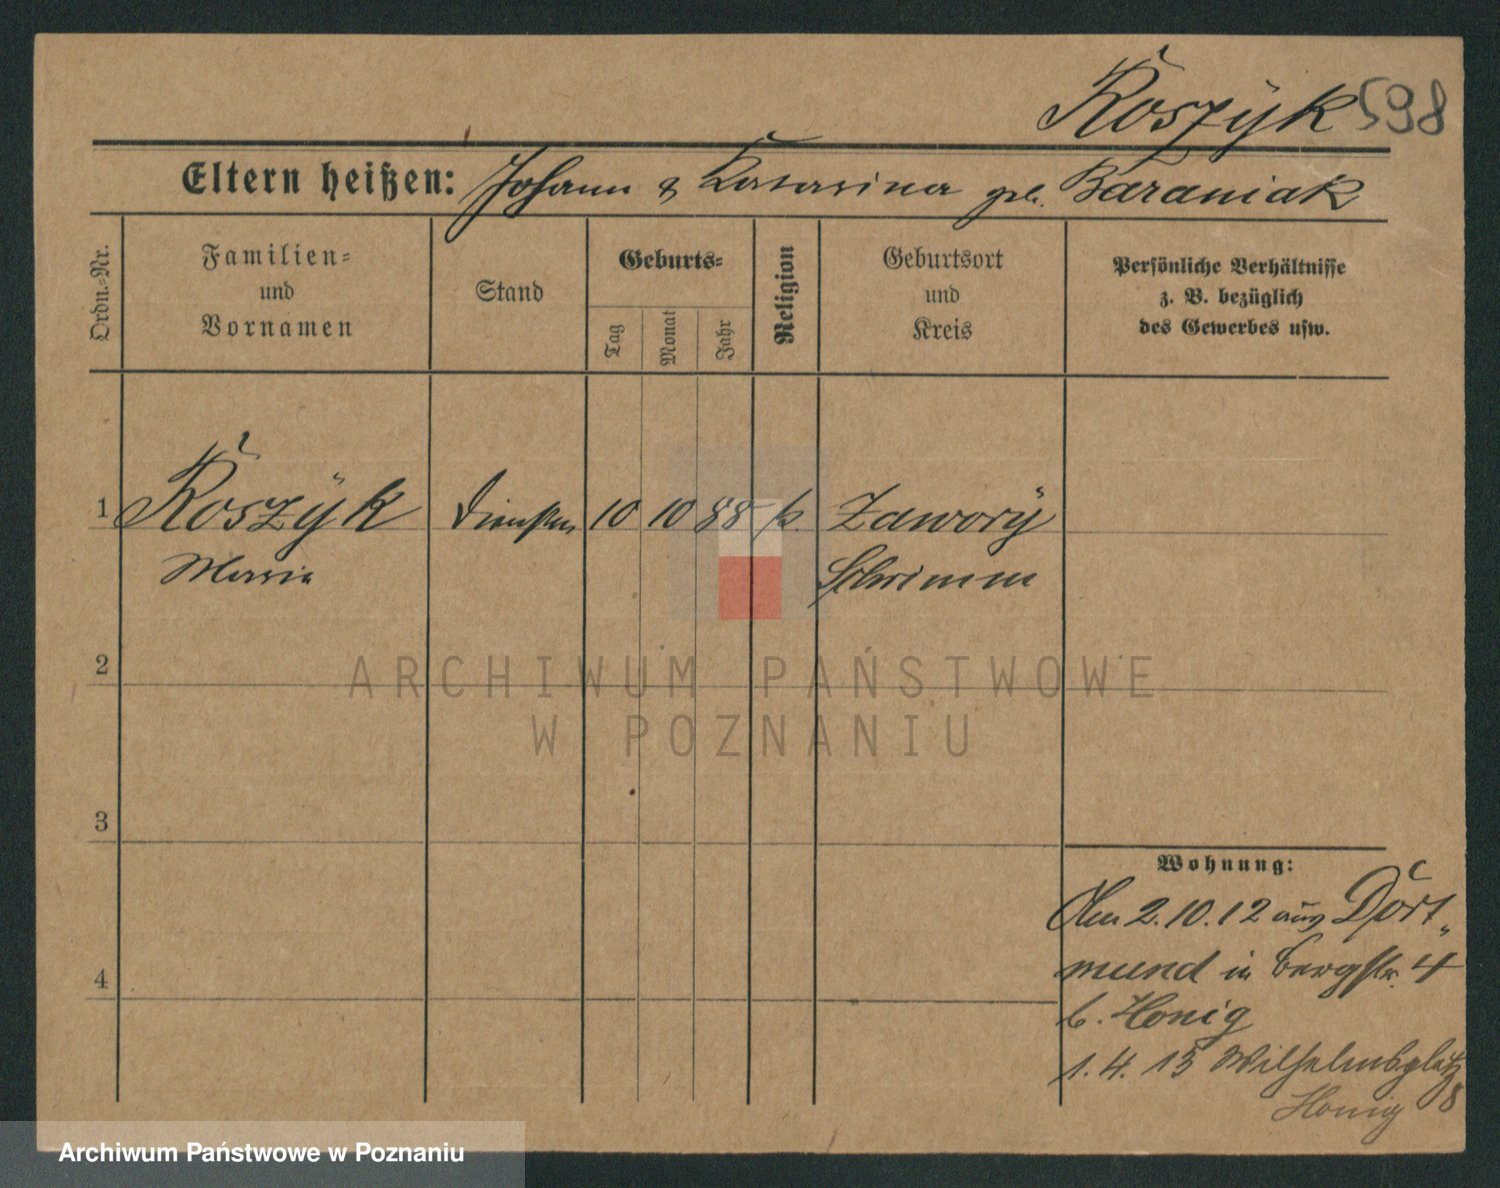 Koszÿk 598
Eltern heißen: Johann & Katarina geb. Baraniak
Ordn.-Nr.
Familien=
und
Vornamen
Stand
Geburts=
Tag
Monat
Jahr
Religion
Geburtsort
und
Kreis
Persönliche Verhältnisse
z. B. bezüglich
des Gewerbes usw.
1 Koszÿk 10 10 88 k. Zaworÿ
Maria Schrimm
2
3
4
Wohnung:
Am 2.10.12 aus Dort„
mund in Bergstr. 4
b. Honig
1.4.13 Wilhelmsplatz
8
Honig
ARCHIWUM PAŃSTWOWE
W POZNANIU
Archiwum Państwowe w Poznaniu